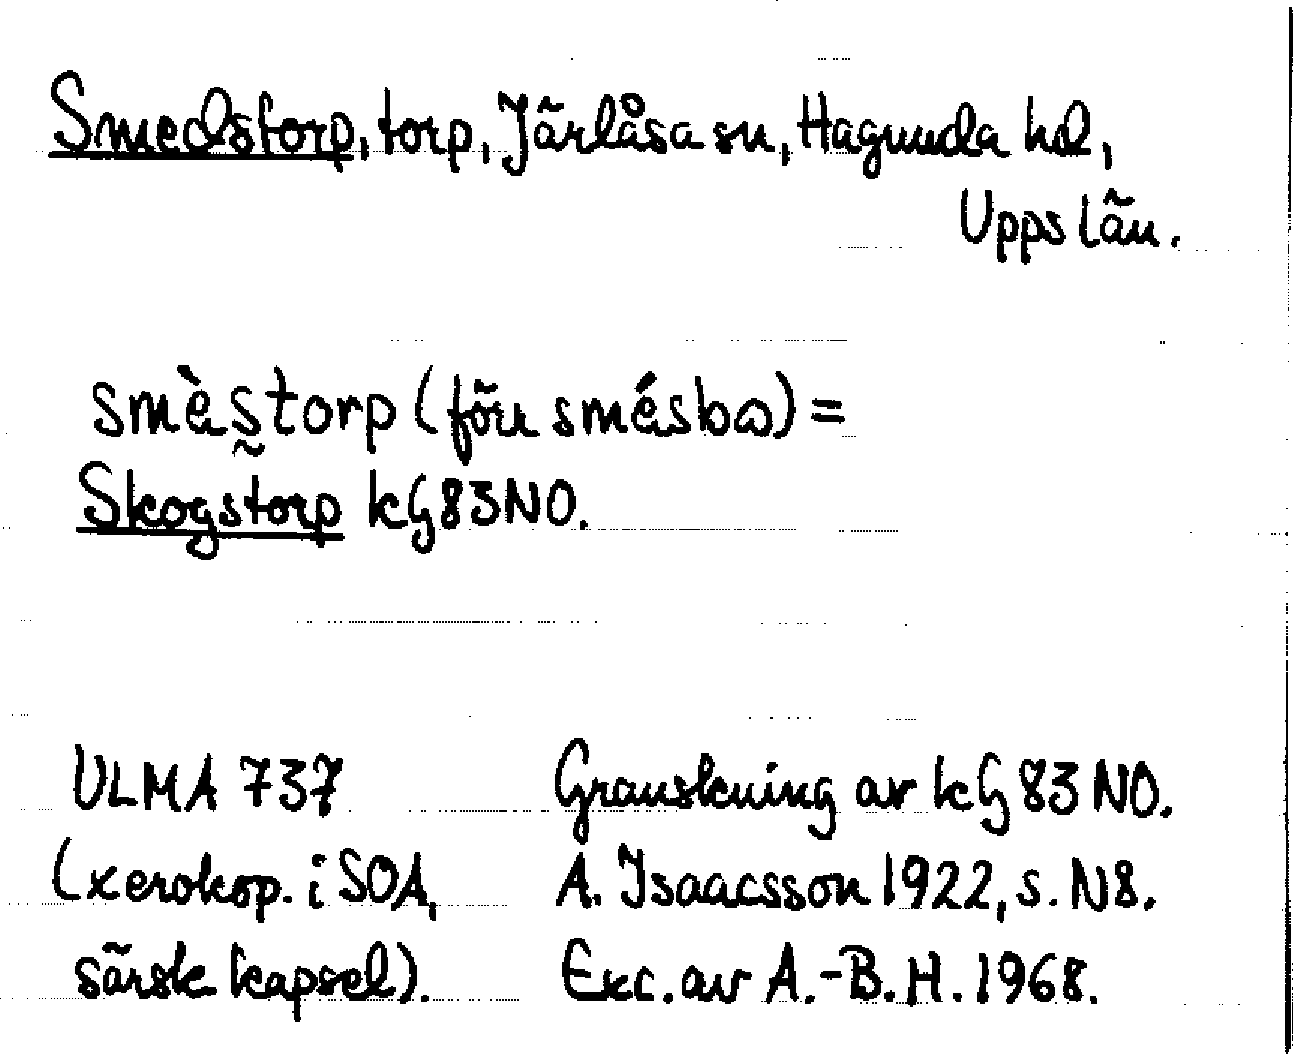 Smedstorp, torp, Järlåsa sn, Hagunda hd,
Upps län.
smὲs̰torp (förr smésbω) =
Skogstorp kG 83 NO.
ULMA 737
(xerokop. i SOA,
särsk kapsel).
Granskning av kG 83 NO.
A. Isaacsson 1922, s. N8.
Exc. av A.-B.H. 1968.